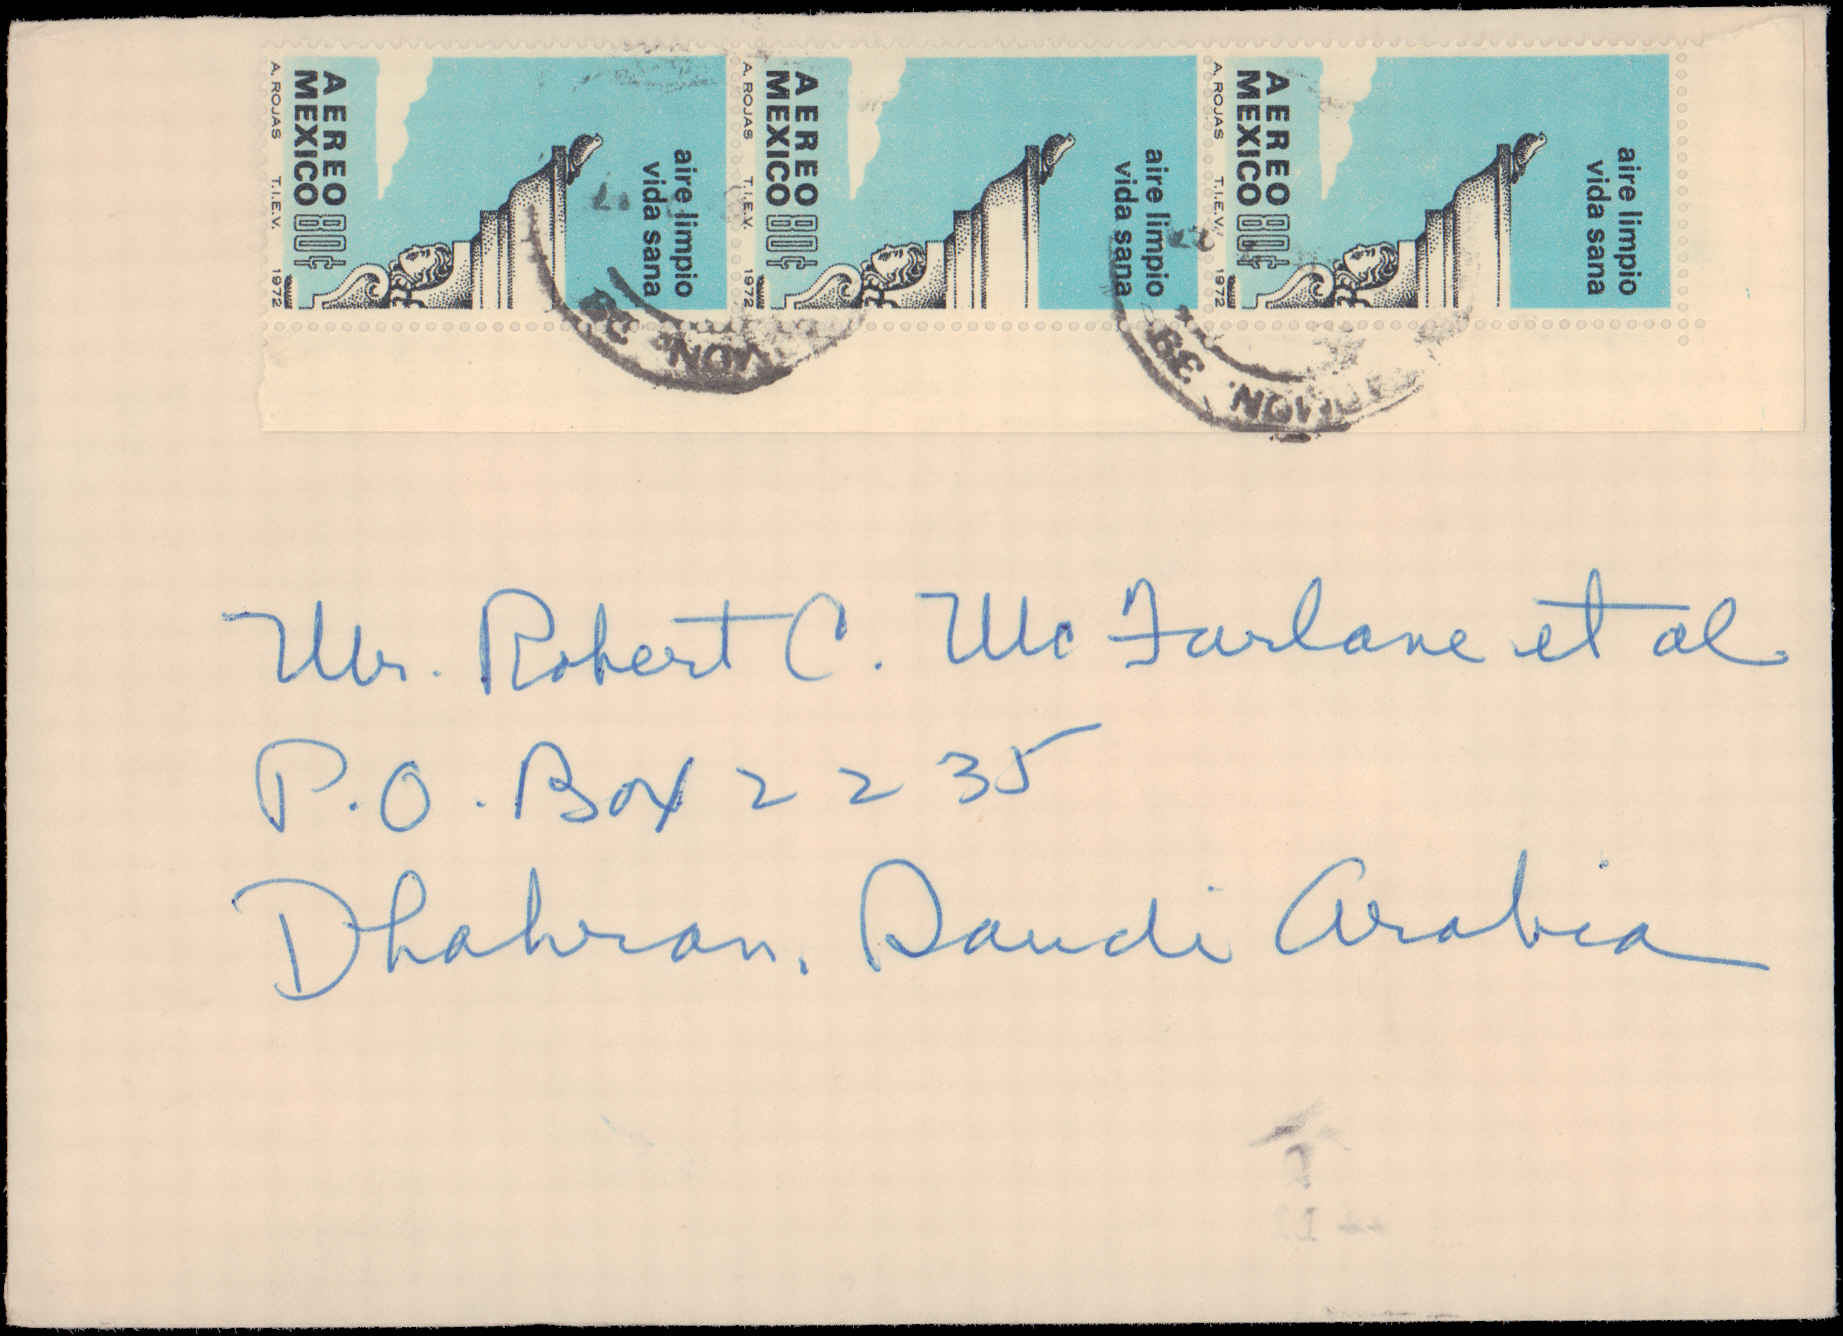 AEREO
MEXICO 80¢
aire limpio
vida sana
A. ROJAS T.I.E.V. 1972
AEREO
MEXICO 80¢
aire limpio
vida sana
A. ROJAS T.I.E.V. 1972
AEREO
MEXICO 80¢
aire limpio
vida sana
A. ROJAS T.I.E.V. 1972
Mr. Robert C. McFarlane et al.
P.O. Box 2235
Dhahran, Saudi Arabia